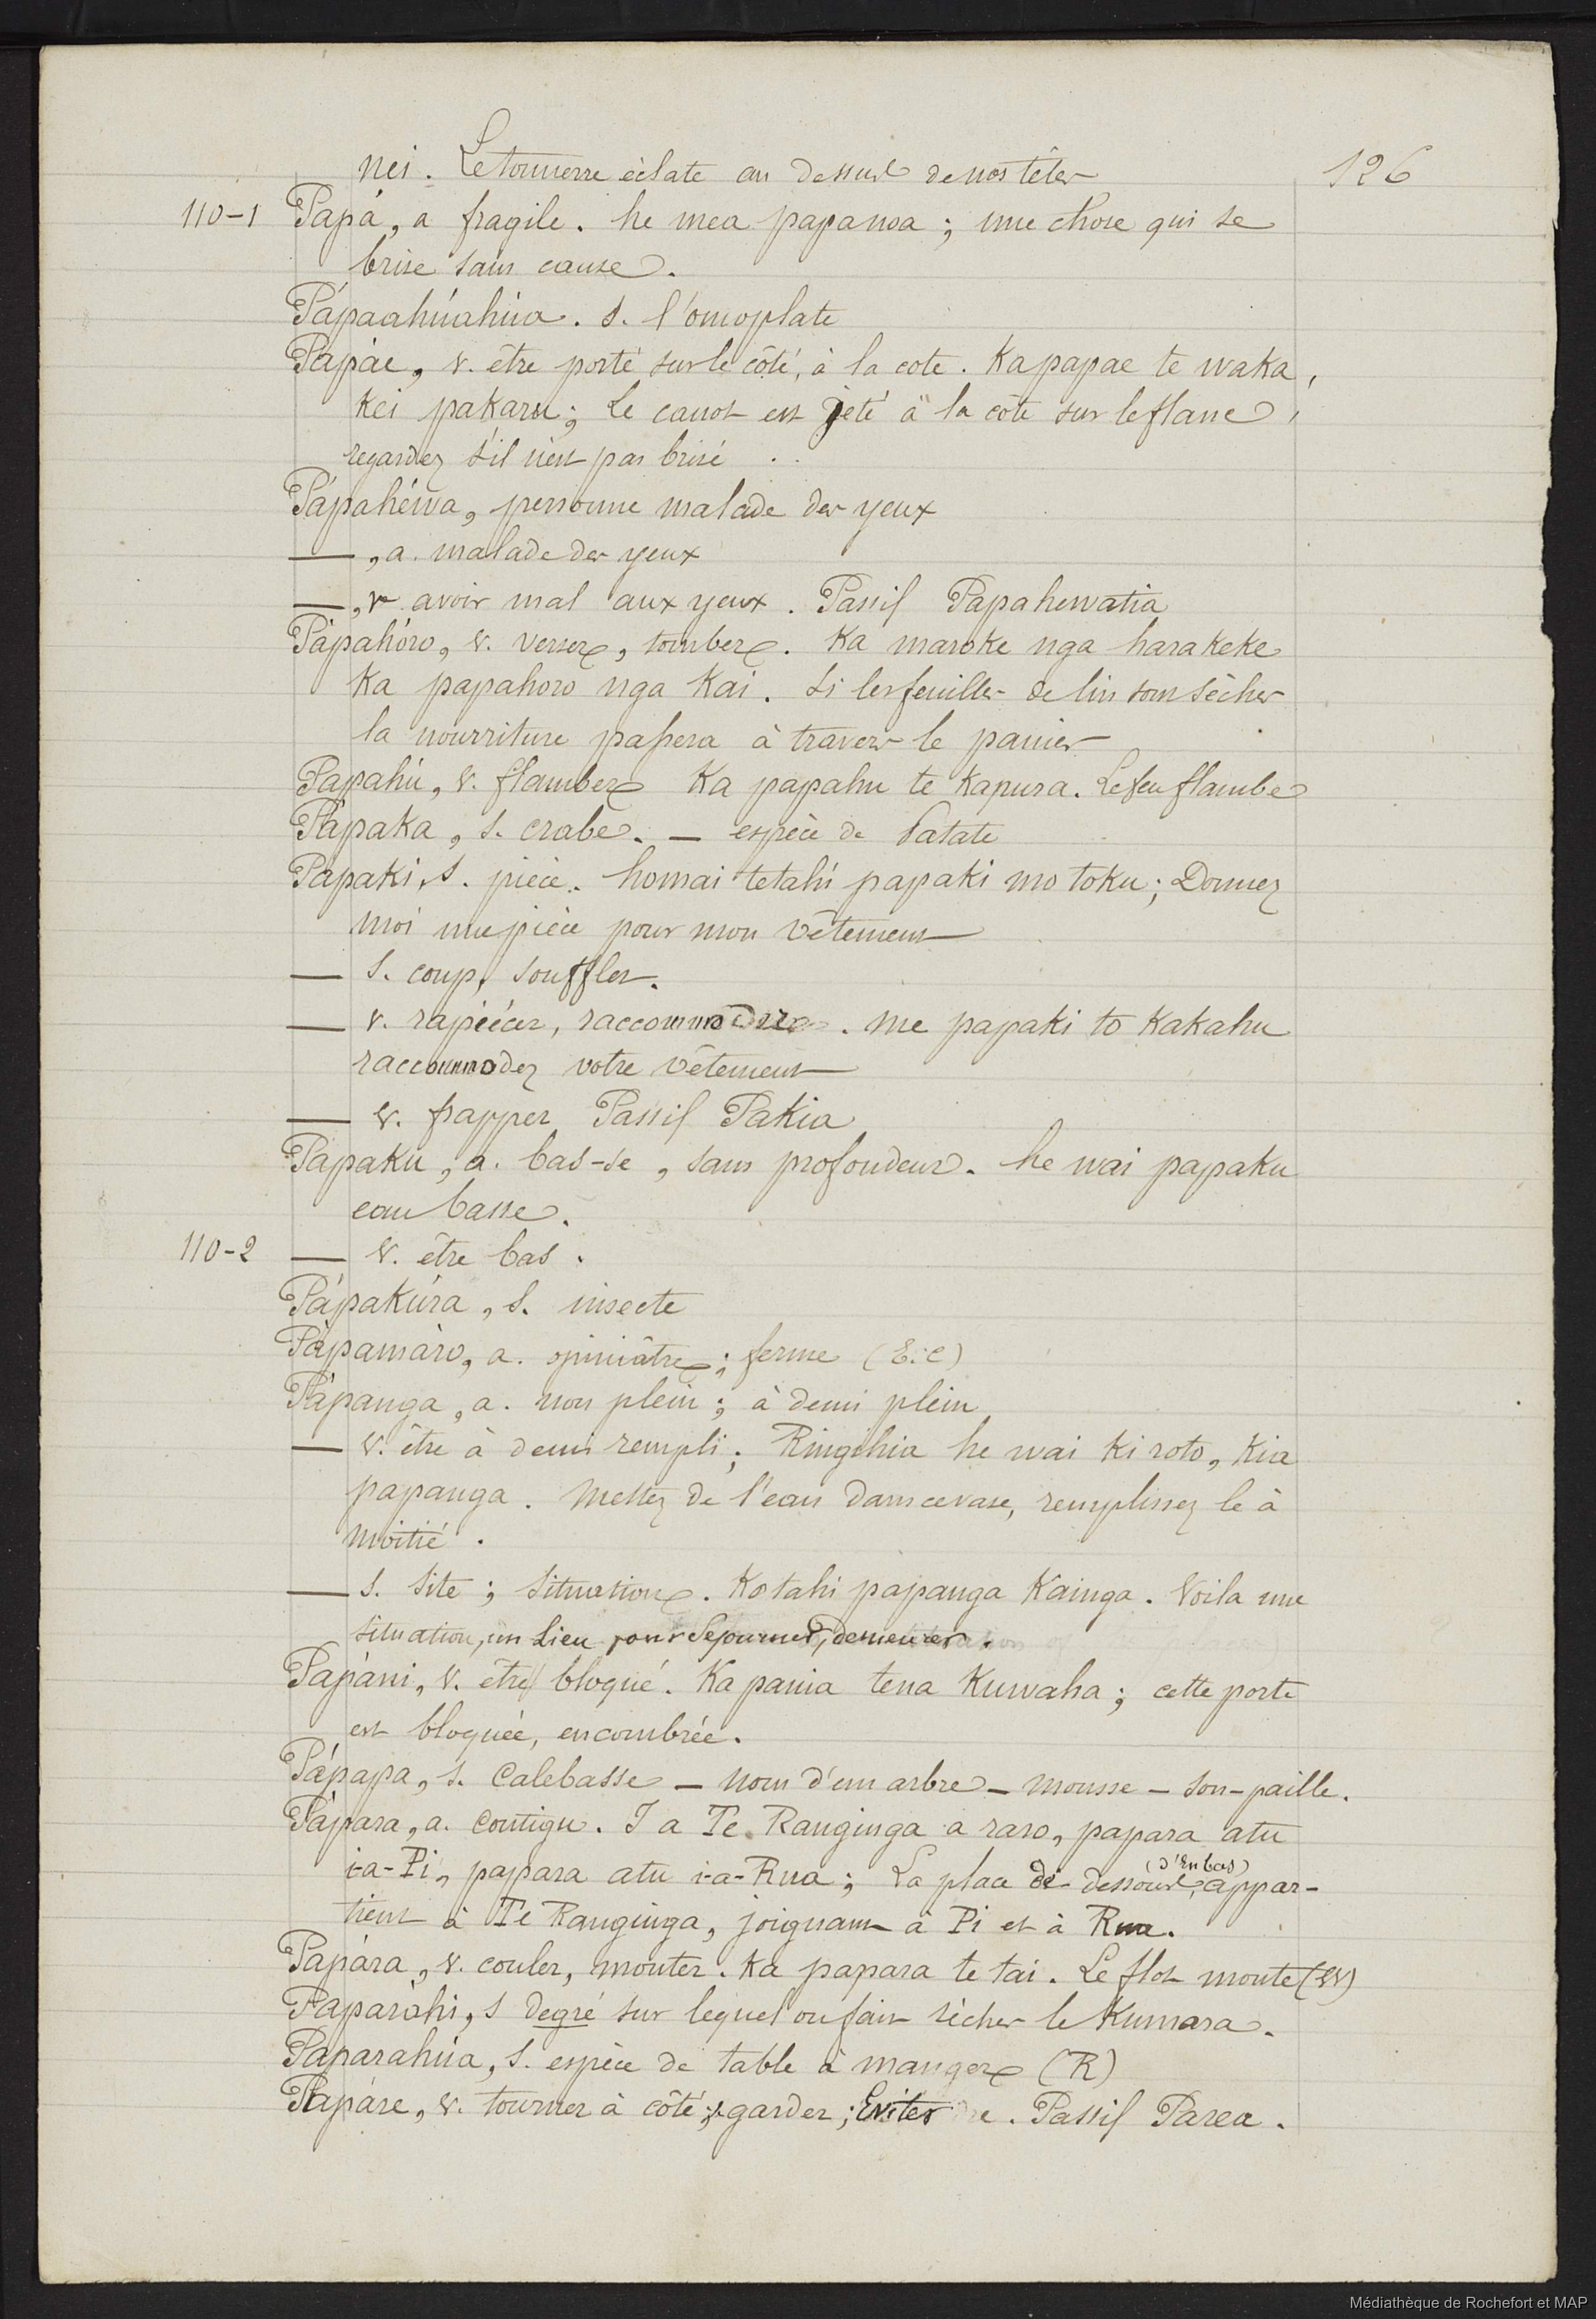 nei. Le tonnerre éclate au dessus de nos têtes
126
110-1 Papá, a fragile. he mea papanoa; une chose qui se
brise sans cause.
Pápaahúahúa. s. l'omoplate
Papáe, v. être porté sur le côté, à la cote. Ka papae te waka,
Kei pakaru; Le canot est jeté à la côte sur le flanc,
regardez s'il n'est pas brisé.
Pápahéwa, personne malade des yeux
—, a. malade des yeux
—, v. avoir mal aux yeux. Passif Papahewatia
Pápahóro, v. verser, tomber. Ka maroke nga harakeke
Ka papahoro nga Kai. Si les feuilles de lin sont sèches
la nourriture passera à travers le panier
Papahú, v. flamber Ka papahu te Kapura. Le feu flambe
Pápaka, s. crabe. — espèce de Patate
Papaki, s. pièce. homai tetahi papaki mo toku; Donnez
moi une pièce pour mon vêtement
— s. coup, soufflet.
— v. rapiécer, raccommoder. me papaki to Kakahu
raccommodez votre vêtement
— v. frapper Passif Pakia
Pápaku, a. bas-se, sans profondeur. he wai papaku
eau basse.
110-2 — v. être bas.
Pápakúra, s. insecte
Pápamáro, a. opiniâtre; ferme (E.C)
Pápanga, a. non plein; à demi plein
— v. être à demi rempli; Ringihia he wai ki roto, Kia
papanga. Mettez de l'eau dans ce vase, remplissez le à
moitié.
— s. Site; situation. Kotahi papanga Kainga. Voila une
situation, un Lieu pour Séjourner, demeurer.
Papáni, v. être bloqué. Ka pania tena Kuwaha; cette porte
est bloquée, encombrée.
Pápapa, s. Calebasse — nom d'un arbre — mousse — son-paille.
Pápara, a. Contigu. I a Te Ranginga a raro, papara atu
i-a-Pi, papara atu i-a-Rua; La place de dessous, (d'En bas) appar-
tient à Te Ranginga, joignant à Pi et à Rua.
Papára, v. couler, monter. Ka papara te tai. Le flot monte (W)
Paparáhi, s degré sur lequel on fait sécher le Kumara.
Paparahúa, s. espèce de table à manger (R)
Papáre, v. tourner à côté; garder; Eviter. Passif Parea.
Médiathèque de Rochefort et MAP